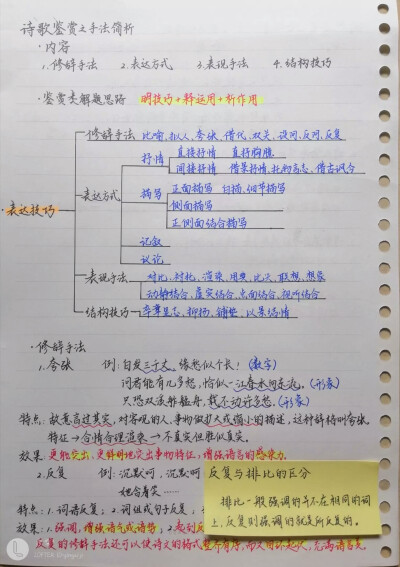 诗歌鉴赏之手法简析
·内容
1.修辞手法 2.表达方式 3.表现手法 4.结构技巧
·鉴赏类解题思路 明技巧+释运用+析作用
修辞手法 比喻、拟人、夸张、借代、双关、设问、反问、反复
抒情 直接抒情 直抒胸臆
间接抒情 借景抒情、托物言志、借古讽今
·表达技巧
表达方式
描写 正面描写 白描、细节描写
侧面描写
正侧面结合描写
记叙
议论
表现手法 对比、衬托、渲染、用典、比兴、联想、想象
动静结合、虚实结合、点面结合、视听结合
结构技巧 卒章显志、抑扬、铺垫、以景结情
·修辞手法
1.夸张 例:白发三千丈,缘愁似个长!(数字)
问君能有几多愁,恰似一江春水向东流。(形象)
只恐双溪舴艋舟,载不动许多愁。(形象)
特点:故意言过其实,对客观的人、事物做扩大或缩小的描述,这种辞格叫夸张。
特征→合情合理渲染→不真实但胜似真实。
效果:更能突出、更鲜明地突出事物特征,增强语言的感染力.
2.反复 例:沉默呵,沉默呵
她含着笑……
特点:1.词语反复;2.词组或句子反复,
效果:1.强调,增强语气或语势,2.起到反
反复的修辞手法还可以使诗文的格式整齐有序,而又回环起伏,充满语言美
反复与排比的区分
排比一般强调的并不在相同的词
上,反复则强调的就是所反复的。